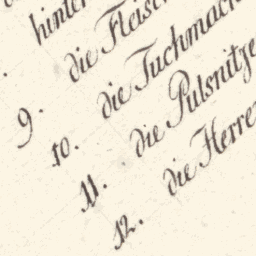 hinter
9. die Fleisc
10. die Tuchmach
11. die Pulsnitze
12. die Herre